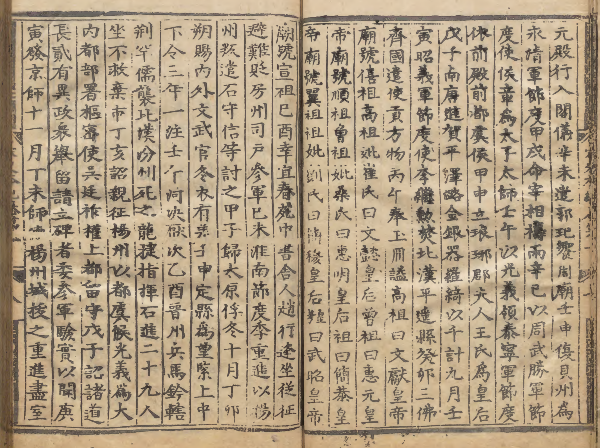 元殿行入閤儀辛未遣郭玘饗周廟壬申復貝州爲
永清軍節度甲戌命宰相禱雨辛巳以周武勝軍節
度使侯章爲太子太師壬午以光義領泰寧軍節度
依前殿前都虞候甲申立琅琊郡夫人王氏爲皇后
戊子南唐進賀平澤潞金銀器羅綺以千計九月壬
寅昭義軍節度使李繼勳焚北漢平遙縣癸卯三佛
齊國遣使貢方物丙午奉玉冊謚高祖曰文獻皇帝
廟號僖祖高祖妣崔氏曰文懿皇后曾祖曰惠元皇
帝廟號順祖曾祖妣桑氏曰惠明皇后祖曰簡恭皇
帝廟號翼祖祖妣劉氏曰簡穆皇后皇考曰武昭皇帝
廟號宣祖己酉幸宜春苑中書舍人趙行逢坐從征
避難貶房州司戶參軍己未淮南節度李重進以揚
州叛遣石守信等討之甲子歸太原俘冬十月丁卯
朔賜內外文武官冬衣有差壬申定縣爲望緊上中
下令三年一注壬午河決厭次乙酉晉州兵馬鈐轄
荊罕儒襲北漢汾州死之龍捷指揮石進二十九人
坐不救棄市丁亥詔親征揚州以都虞候光義爲大
內都部署樞密使吳廷祚權上都留守戊子詔諸道
長貳有異政衆舉留請立碑者委參軍驗實以聞庚
寅發京師十一月丁未師傅揚州城拔之重進盡室